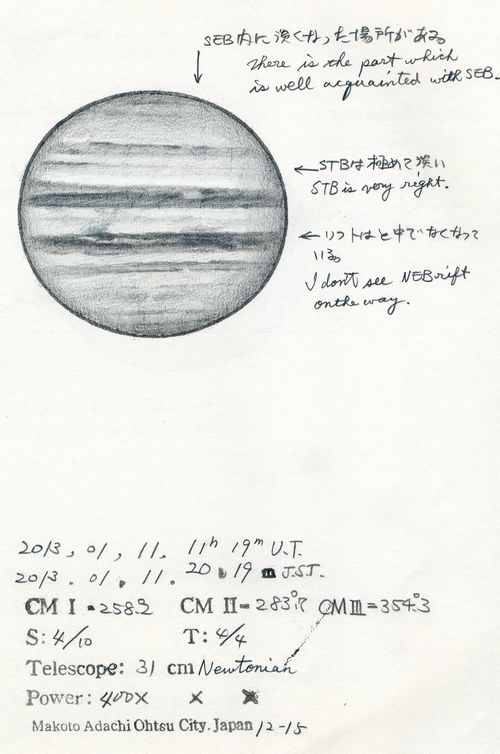 SEB内に淡くなった場所がある
there is the part which
is well acquainted with SEB.
←STBは極めて淡い
STB is very right.
←リフトはと中でなくなって
いる。
I don't see NEB rift
on the way.
2013, 01, 11. 11h 19m U.T.
2013. 01. 11. 20 19 m J.S.T.
CM I = 258.2 CM II = 283.7 CM III = 354.3
S: 4/10 T: 4/4
Telescope: 31 cm Newtonian
Power: 400× × ×
Makoto Adachi Ohtsu City. Japan 12-15